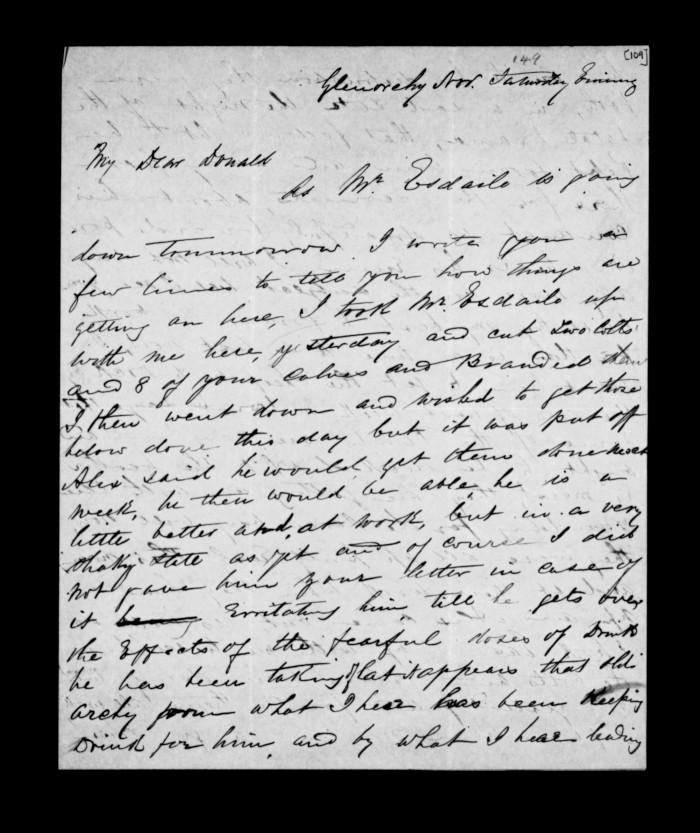 [109]
149
Glenorchy Nov. Saturday Evening
My Dear Donald
As Mr Esdaile is going
down tommorrow I write you a
few lines to tell you how things are
getting on here, I took Mr. Esdaile up
with me here, yesterday and cut two colts
and 8 of your calves and Branded them
I then went down and wished to get those
below done this day but it was put off
Alix said he would get them done next
week, he then would be able, he is a
little better and, at work, but in a very
shaky state as yet and of course I did
not gave him your letter in case of
it being Erritating him, till he gets over
the Effects of the fearful doses of Drink
he has been taking of lat it appears that old
archy from what I hear has been keeping
Drink for him, and by what I hear leading